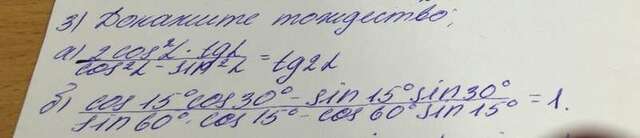 3) Докажите тождество;
а) (2cos²α · tgα)/(cos²α − sin²α) = tg2α
б) (cos15°cos30° − sin15°sin30°)/(sin60°·cos15° − cos60°sin15°) = 1.